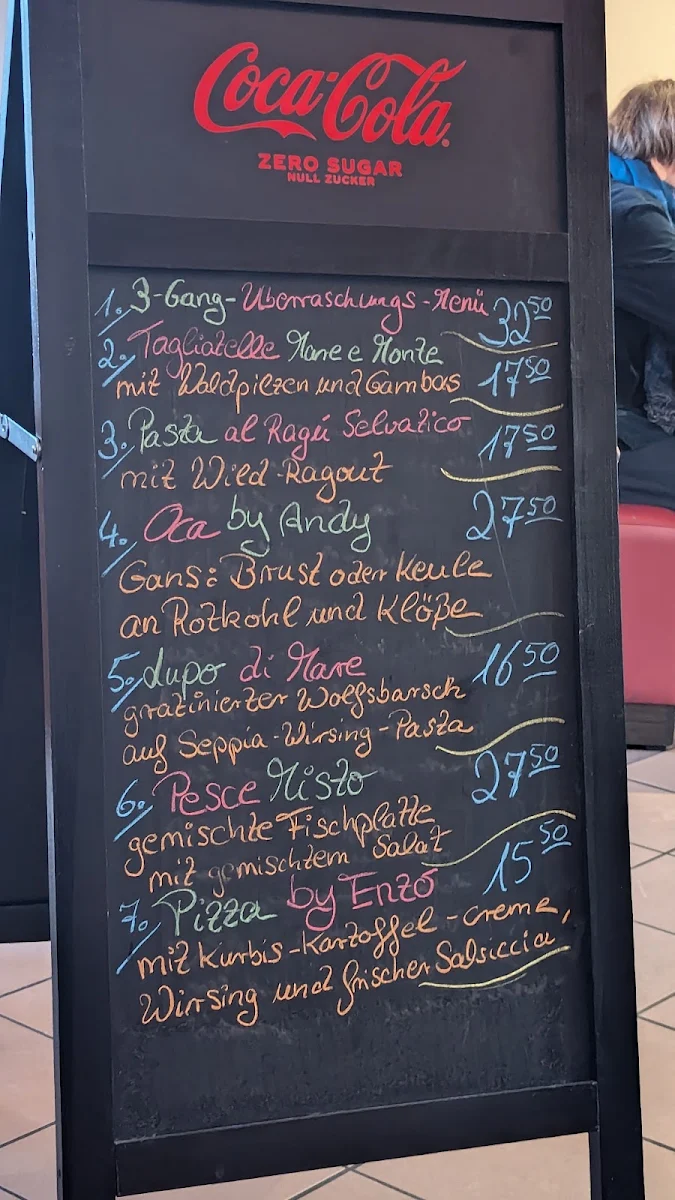 Coca-Cola
ZERO SUGAR
NULL ZUCKER
1. 3-Gang-Überraschungs-Menü 32 50
2. Tagliatelle Mare e Monte
mit Waldpilzen und Gambas 17 50
3. Pasta al Ragú Selvatico 17 50
mit Wild-Ragout
4. Oca by Andy 27 50
Gans: Brust oder Keule
an Rotkohl und Klöße
5. Lupo di Mare 16 50
gratinierter Wolfsbarsch
auf Seppia-Wirsing-Pasta
6. Pesce Misto 27 50
gemischte Fischplatte
mit gemischtem Salat
7. Pizza by Enzo 15 50
mit Kürbis-Kartoffel-creme,
Wirsing und frischer Salsiccia